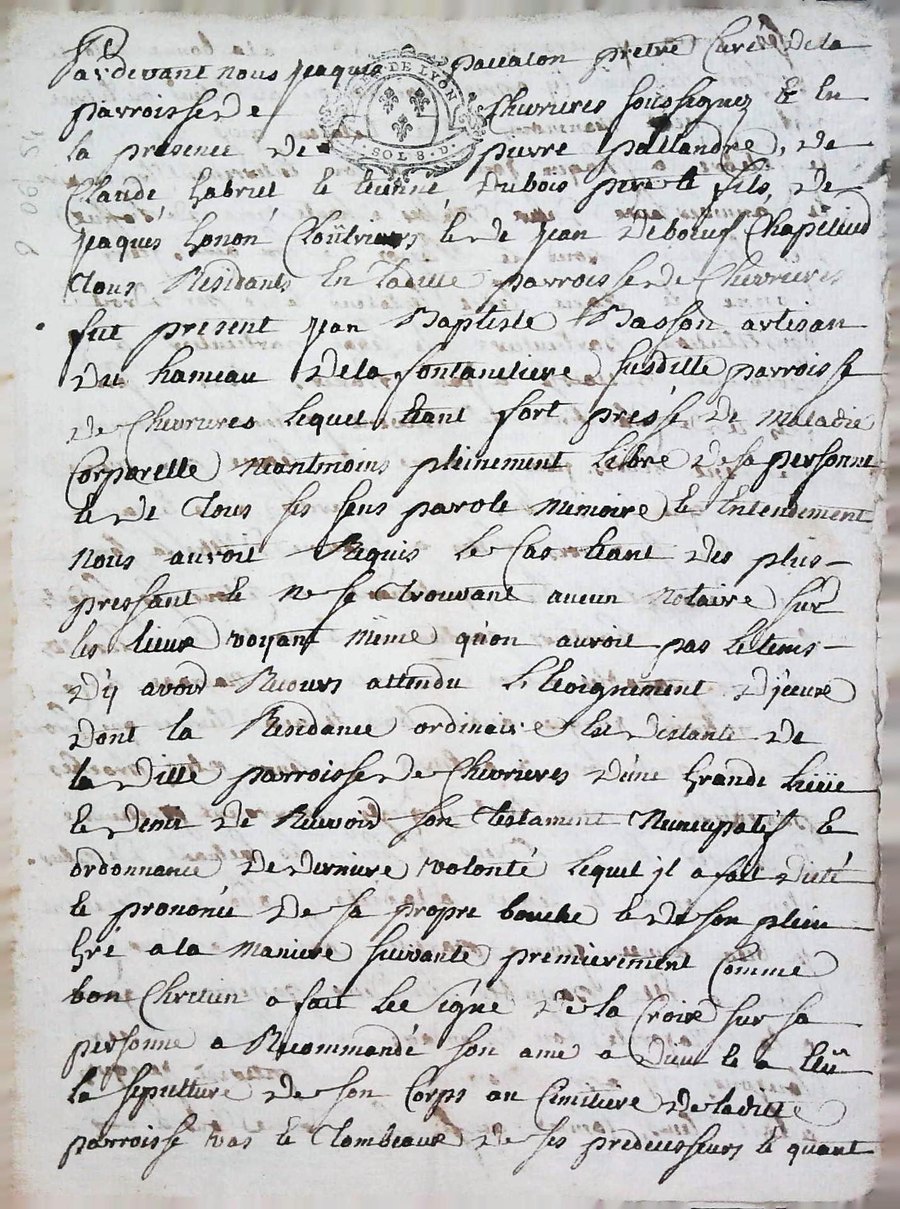 Pardevant nous jaques paccalon pretre Curé de la
DE LYON
SOLS 8. D.
parroisse de Chevrieres soussignez & en
la presence de pierre pallandre, de
Claude gabriel et etienne Dubois pere et fils, de
jaques honoré et de jean deboeuf Chapelier
tous Residants en laditte parroisse de Chevrieres
fut present jean Baptiste Basson artisan
du hameau de la fontaneliere susditte parroisse
de Chevrieres lequel etant fort pressé de maladie
Corporelle neantmoins pleinement Libre de sa personne
et de tous ses sens parole memoire et entendement
nous auroit Requis le Cas etant des plus
pressant et ne se trouvant aucun notaire sur
les lieux voyant même qu'on auroit pas le tems
d'y avoir Recours attendu L'eloignement d'jceux
dont la Residance ordinaire est distante de
la ditte parroisse de Chevrieres d'une grande Lieüe
et demi de Recevoir son testament Nuncupatif et
ordonnance de derniere volonté lequel jl a fait dicté
et prononcé de sa propre bouche et de son plein
gré a la maniere suivante premierement Comme
bon Chretien a fait Le signe de la Croix sur sa
personne a Recommandé son ame a Dieu et a elu
la sepulture de son Corps au Cimetiere de laditte
parroisse vas et tombeaux de ses predecesseurs et quant